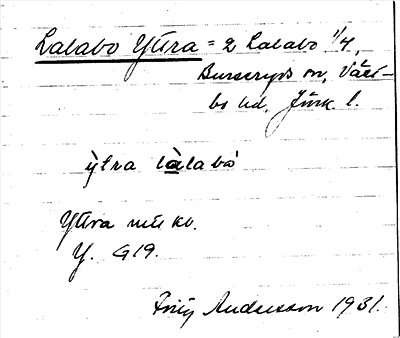 Lalabo Yttra = 2 Lalabo 1/4,
Burseryds sn, Väst-
bo hd, Jönk. l.
ỳtra làlabo
Yttra
Y. G19.
Andersson 1931.